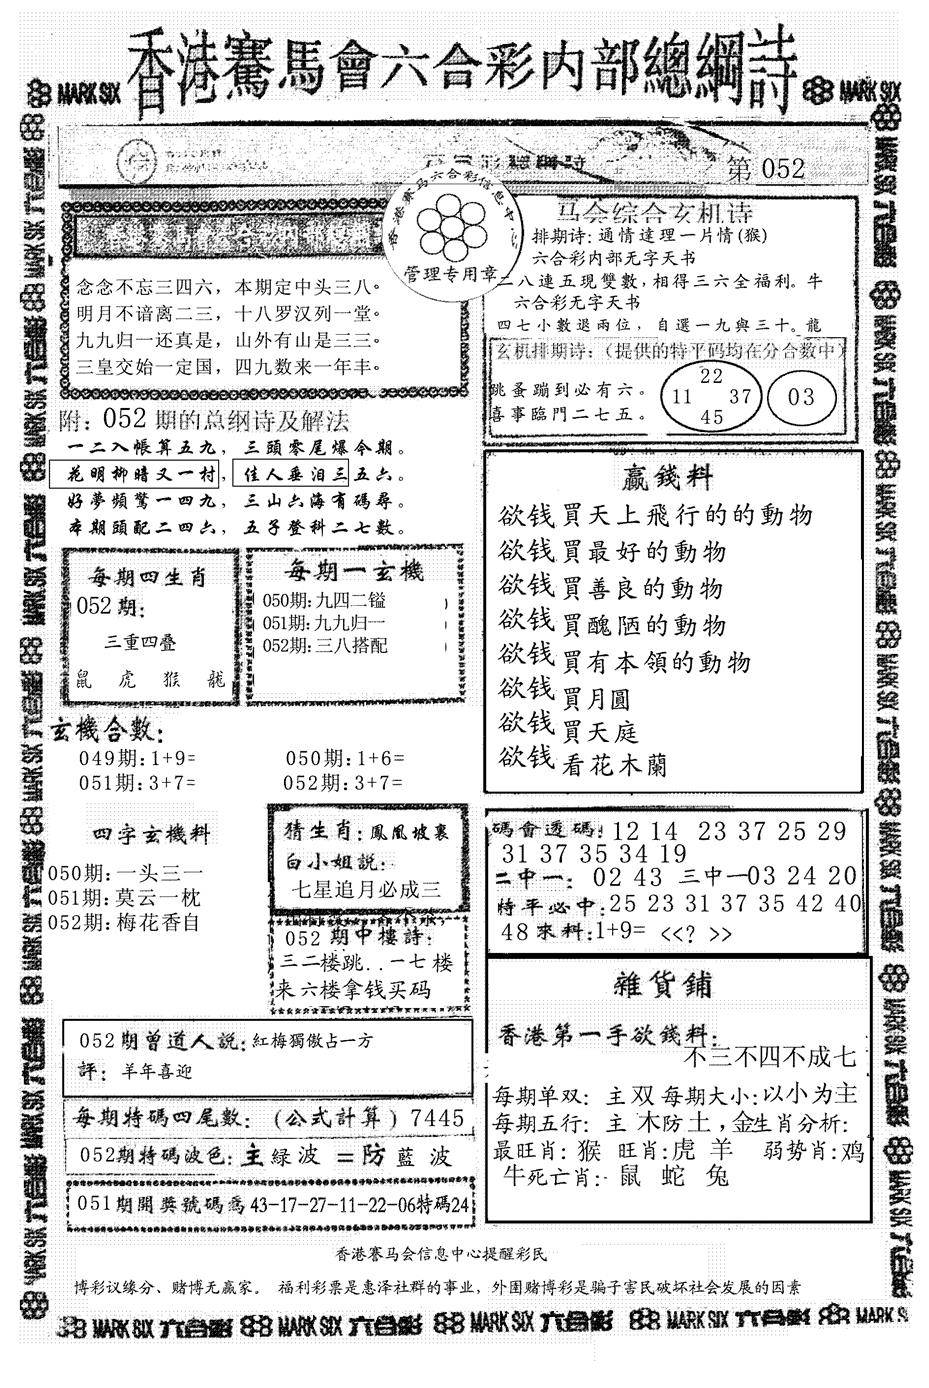 香港賽馬會六合彩内部總綱詩
MARK SIX
MARK SIX
第 052
香港赛马六合彩信息中心
管理专用章
念念不忘三四六，本期定中头三八。
明月不谙离二三，十八罗汉列一堂。
九九归一还真是，山外有山是三三。
三皇交始一定国，四九数来一年丰。
附：052 期的总纲诗及解法
一二入帳算五九，三頭零尾爆今期。
花明柳暗又一村，佳人垂泪三五六。
好夢頻驚一四九，三山六海有碼尋。
本期頭配二四六，五子登科二七數。
马会综合玄机诗
排期诗：通情達理一片情(猴)
六合彩内部无字天书
二八連五現雙數，相得三六全福利。牛
六合彩无字天书
四七小數退兩位，自選一九與三十。龍
玄机排期诗：（提供的特平码均在分合数中）
跳蚤蹦到必有六。
喜事臨門二七五。
22
11 37
45
03
每期四生肖
052期：
三重四叠
鼠 虎 猴 龍
每期一玄機
050期：九四二镒
051期：九九归一
052期：三八搭配
贏錢料
欲钱買天上飛行的的動物
欲钱買最好的動物
欲钱買善良的動物
欲钱買醜陋的動物
欲钱買有本領的動物
欲钱買月圓
欲钱買天庭
欲钱看花木蘭
玄機合數：
049期：1+9= 050期：1+6=
051期：3+7= 052期：3+7=
四字玄機料
050期：一头三一
051期：莫云一枕
052期：梅花香自
猜生肖：鳳凰坡裏
白小姐説：
七星追月必成三
052 期中樓詩：
三二楼跳..一七楼
来六楼拿钱买码
碼會透碼：12 14 23 37 25 29
31 37 35 34 19
二中一：02 43 三中一03 24 20
特平必中：25 23 31 37 35 42 40
48 來料：1+9= <<? >>
雜貨鋪
香港第一手欲錢料：
不三不四不成七
每期单双：主双 每期大小：以小为主
每期五行：主 木防土，金生肖分析：
最旺肖：猴 旺肖：虎 羊 弱势肖：鸡
牛死亡肖：鼠 蛇 兔
052期曾道人説：紅梅獨傲占一方
評：羊年喜迎
每期特碼四尾數：（公式計算）7445
052期特碼波色：主綠波＝防藍波
051期開獎號碼爲43-17-27-11-22-06特碼24
香港赛马会信息中心提醒彩民
博彩议缘分、赌博无赢家。 福利彩票是惠泽社群的事业，外围赌博彩是骗子害民破坏社会发展的因素
MARK SIX 六合彩 MARK SIX 六合彩 MARK SIX 六合彩 MARK SIX 六合彩 MARK SIX